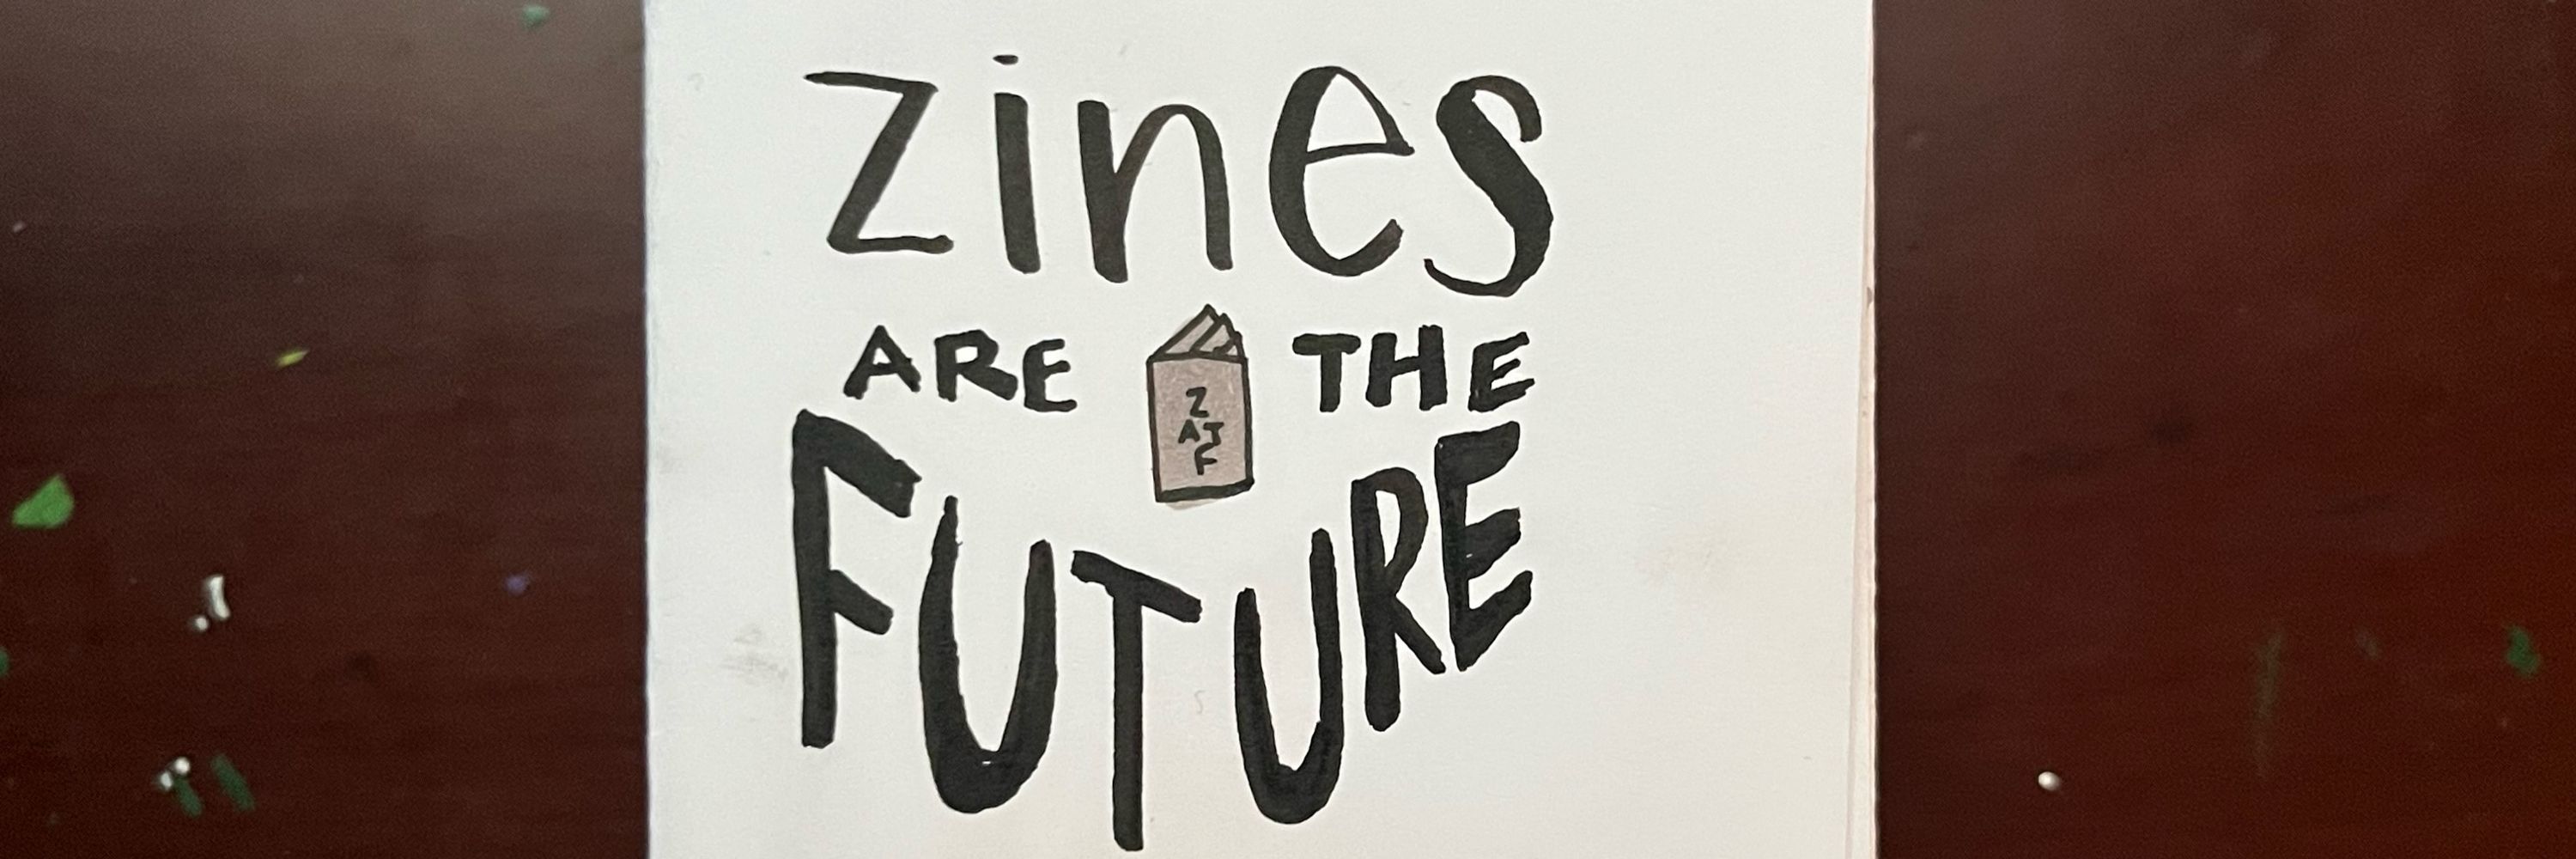 zines
ARE THE
Z
AT
F
FUTURE